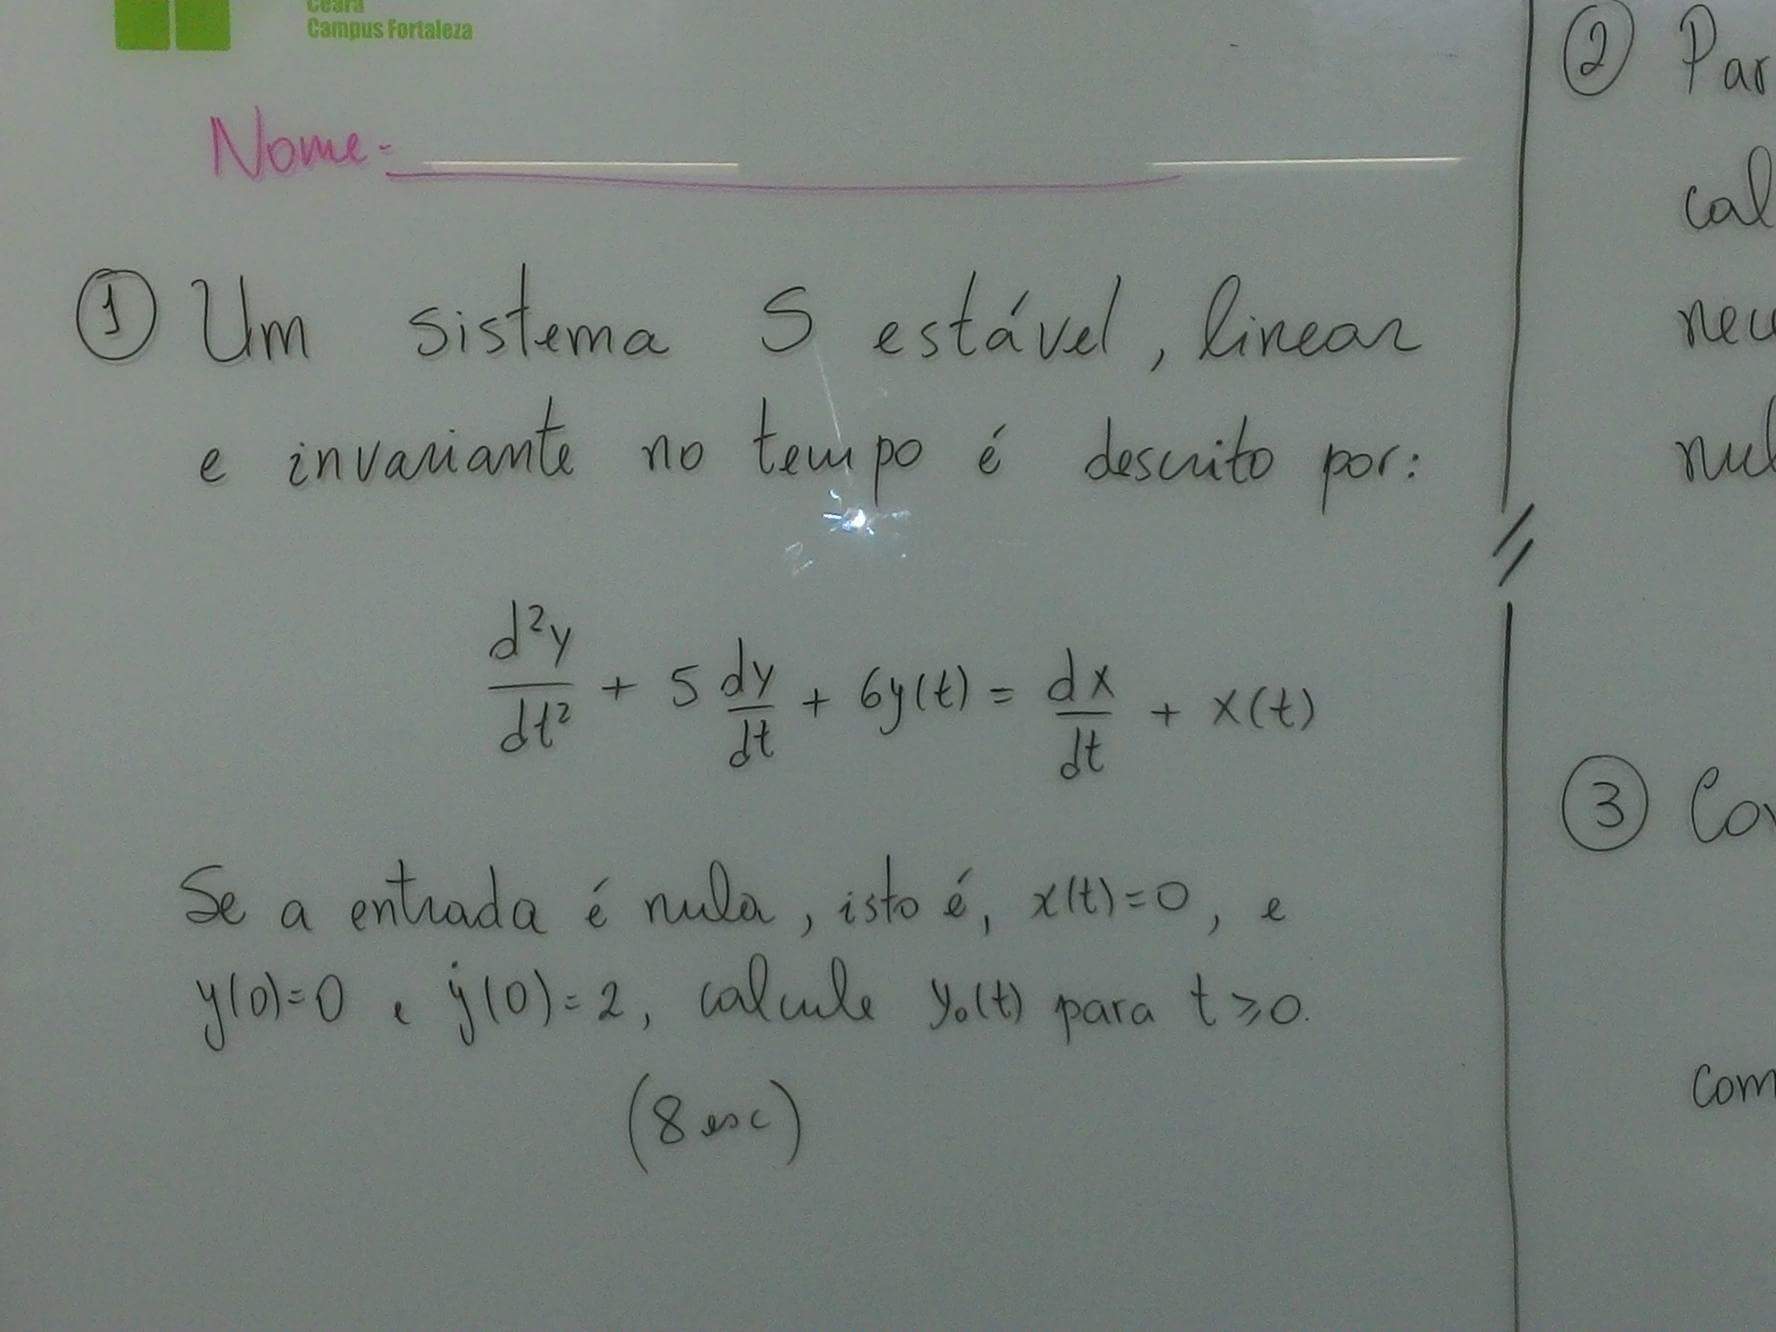 Ceará
Campus Fortaleza
Nome-
① Um sistema S estável, linear
e invariante no tempo é descrito por:
d²y/dt² + 5 dy/dt + 6y(t) = dx/dt + x(t)
Se a entrada é nula, isto é, x(t)=0, e
y(0)=0 e ẏ(0)=2, calcule y₀(t) para t ⩾ 0.
(8 esc)
② Par
cal
nec
nul
③ Co
com